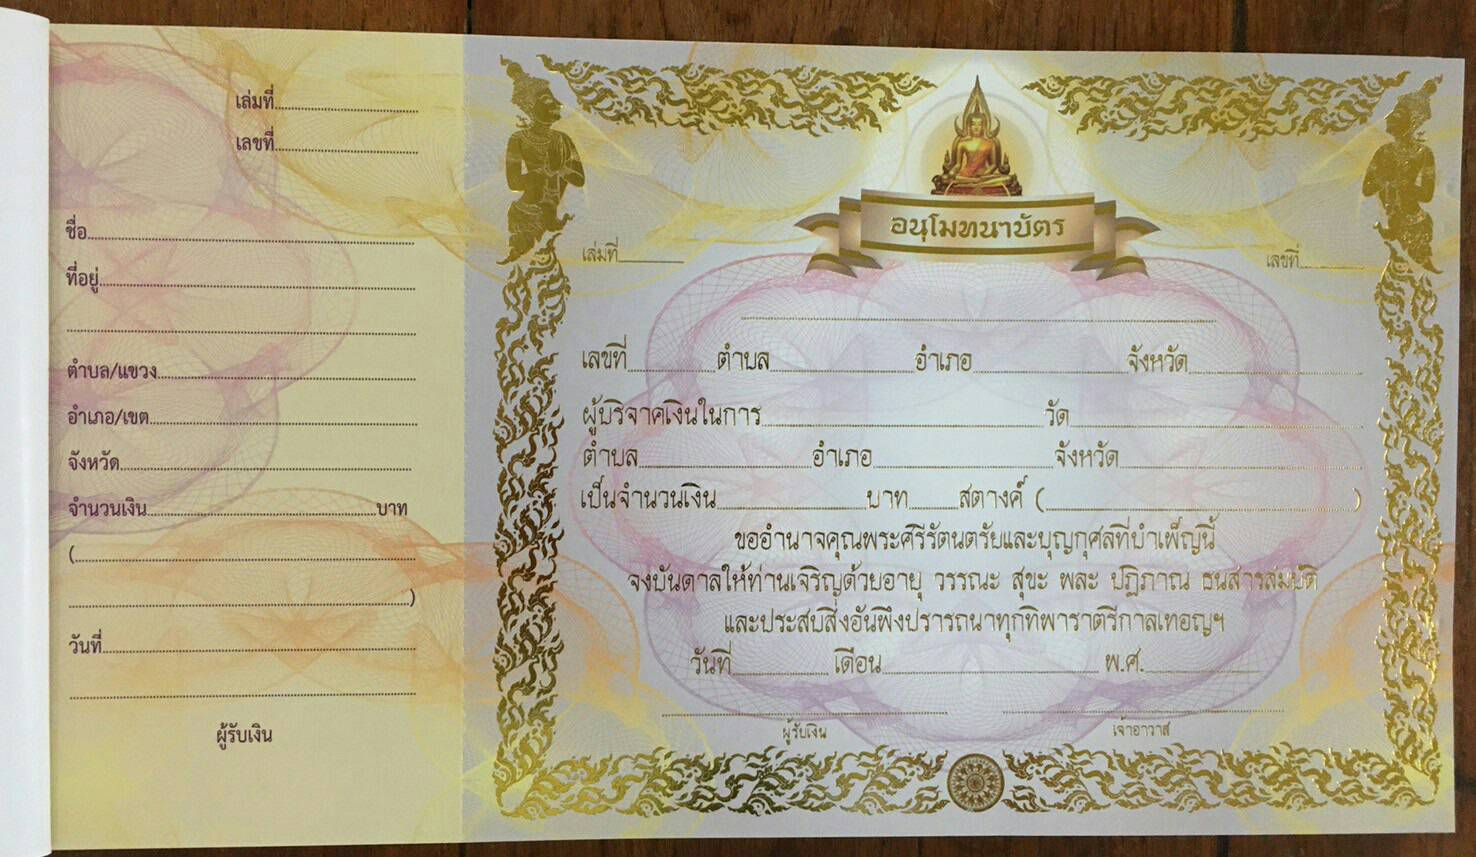 เล่มที่
เลขที่
ชื่อ
ที่อยู่
ตำบล/แขวง
อำเภอ/เขต
จังหวัด
จำนวนเงิน บาท
(
)
วันที่
ผู้รับเงิน
อนุโมทนาบัตร
เล่มที่ เลขที่
เลขที่ ตำบล อำเภอ จังหวัด
ผู้บริจาคเงินในการ วัด
ตำบล อำเภอ จังหวัด
เป็นจำนวนเงิน บาท สตางค์ ( )
ขออำนาจคุณพระศรีรัตนตรัยและบุญกุศลที่บำเพ็ญนี้
จงบันดาลให้ท่านเจริญด้วยอายุ วรรณะ สุขะ พละ ปฏิภาณ ธนสารสมบัติ
และประสบสิ่งอันพึงปรารถนาทุกทิพาราตรีกาลเทอญฯ
วันที่ เดือน พ.ศ.
ผู้รับเงิน เจ้าอาวาส